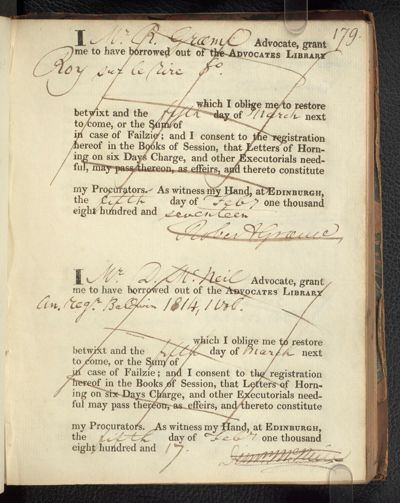 179.
I Mr R. Graeme Advocate, grant
me to have borrowed out of the ADVOCATES LIBRARY
Roy sur le Cire fo.
which I oblige me to restore
betwixt and the fifth day of March next
to come, or the Sum of
in case of Failzie; and I consent to the registration
hereof in the Books of Session, that Letters of Horn-
ing on six Days Charge, and other Executorials need-
ful, may pass thereon, as effeirs, and thereto constitute
my Procurators. As witness my Hand, at EDINBURGH,
the fifth day of Feby one thousand
eight hundred and seventeen
Robert Graeme
I Mr D. McNeil Advocate, grant
me to have borrowed out of the ADVOCATES LIBRARY
An. Regr. Baldwin 1814, 1 vol.
which I oblige me to restore
betwixt and the fifth day of March next
to come, or the Sum of
in case of Failzie; and I consent to the registration
hereof in the Books of Session, that Letters of Horn-
ing on six Days Charge, and other Executorials need-
ful may pass thereon, as effeirs, and thereto constitute
my Procurators. As witness my Hand, at EDINBURGH,
the fifth day of Feby one thousand
eight hundred and 17.